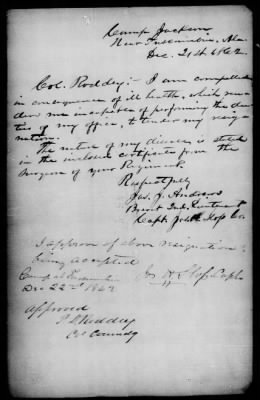 Camp Jackson
Near Tuscumbia, Ala.
Dec. 21st 1862.
Col. Roddey:- I am compelled
in consequence of ill health, which ren-
ders me incapable of performing the du-
ties of my office, to tender my resig-
nation.
The nature of my disease is stated
in the inclosed certificate from the
Surgeon of your Regiment.
Respectfully
Jas. J. Andrews
Brevet 2nd Lieutenant
Capt.
I approve of above resignation
being accepted
Camp at Tuscumbia
Dec 22nd 1862
Approved
P. D. Roddey
Col Comdg